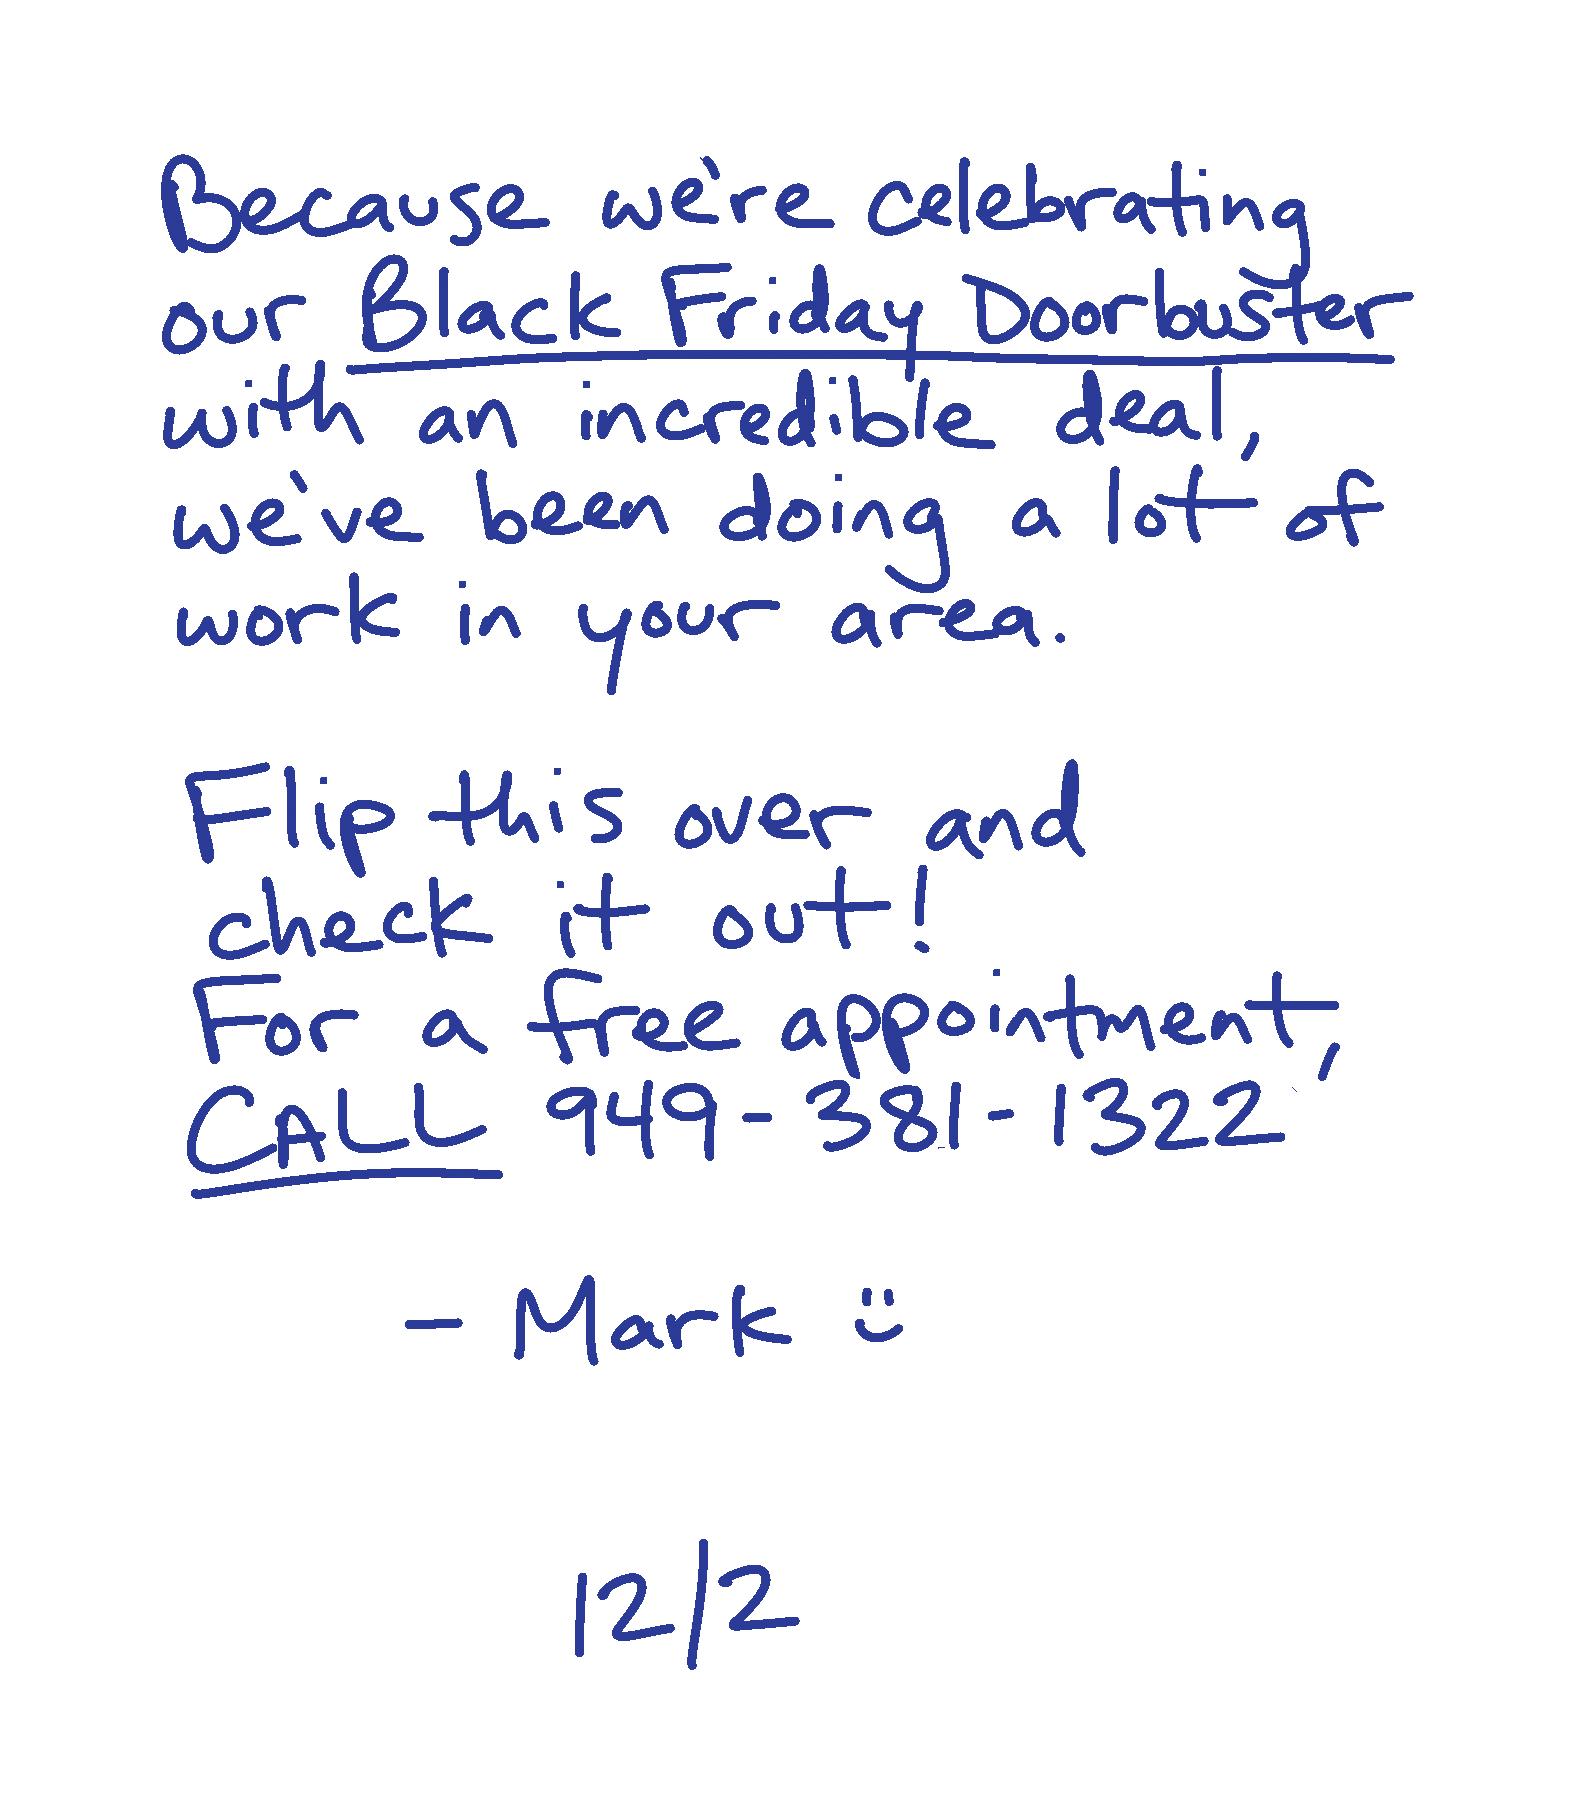 Because we're celebrating
our Black Friday Doorbuster
with an incredible deal,
we've been doing a lot of
work in your area.
Flip this over and
check it out!
For a free appointment,
CALL 949-381-1322
- Mark :)
12/2